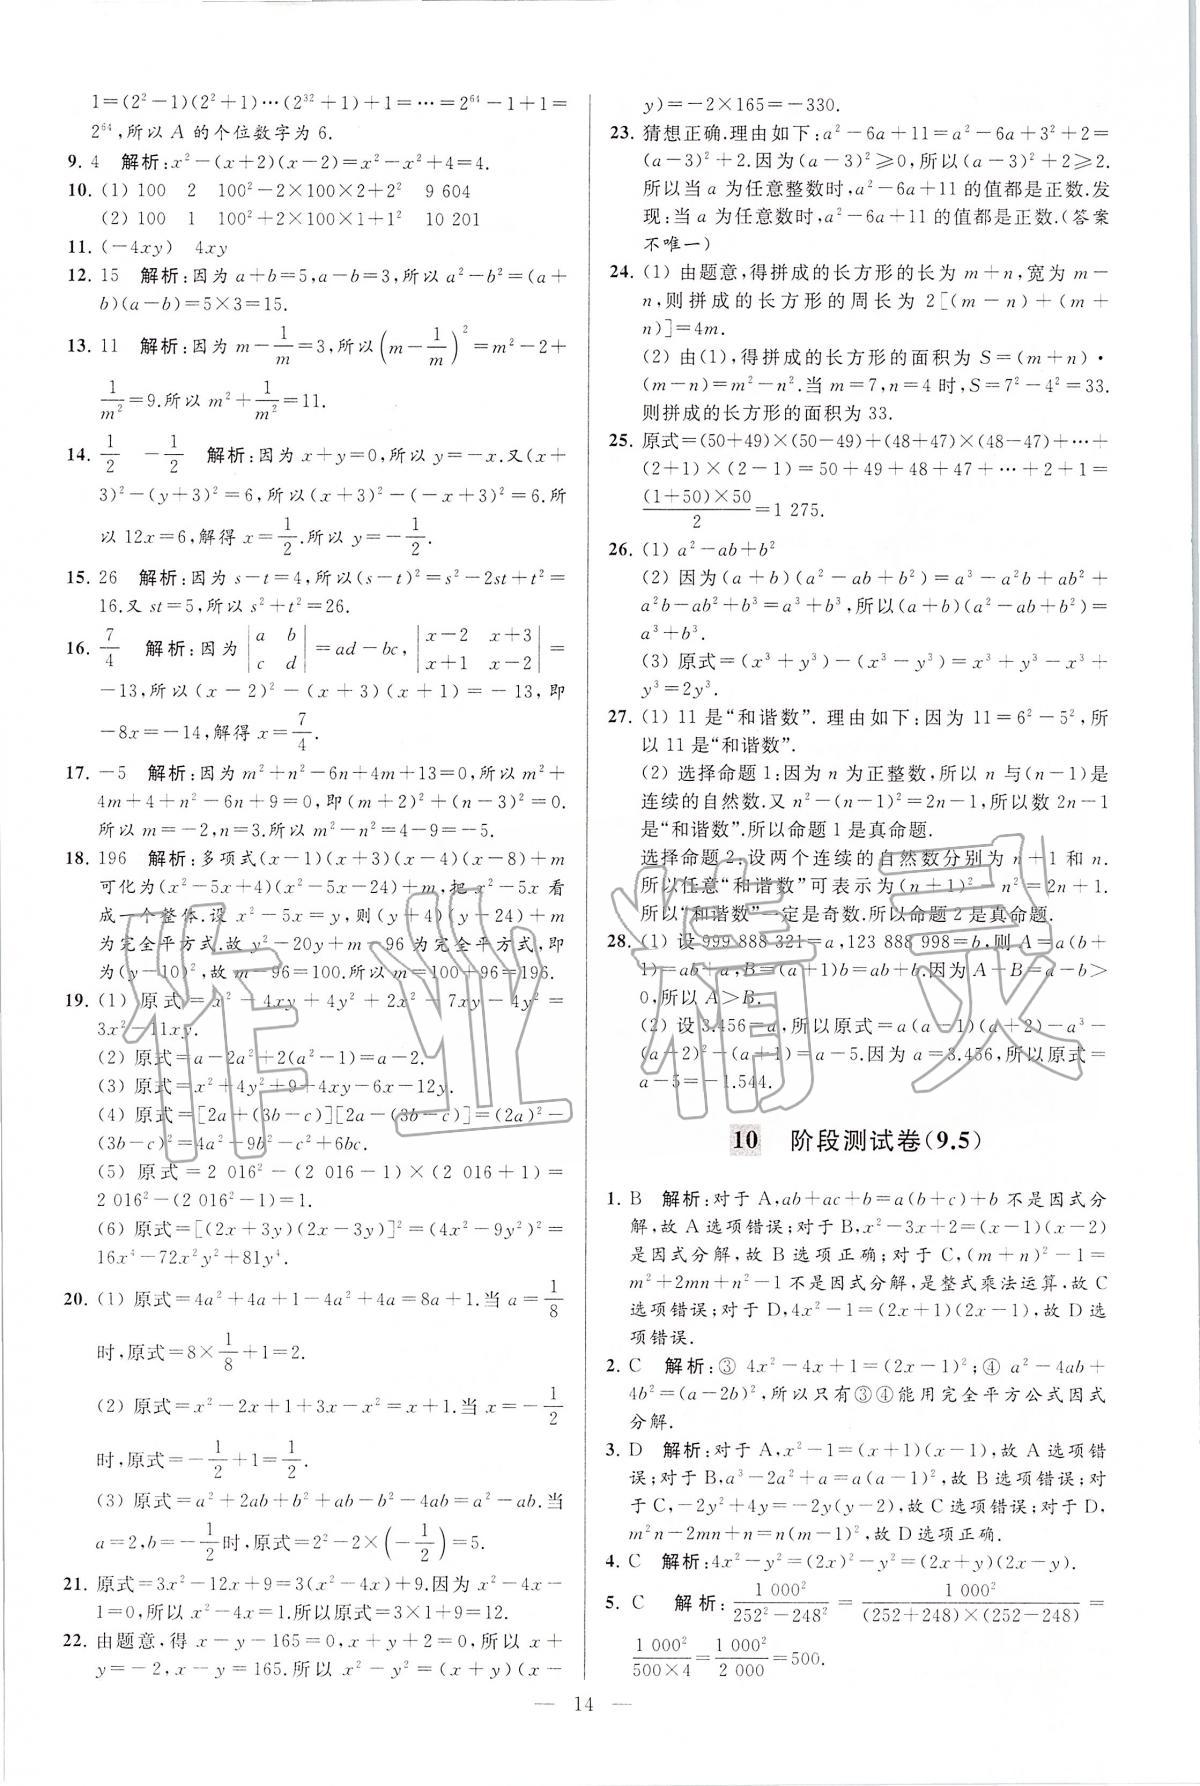 1=(2²-1)(2²+1)…(2³²+1)+1=…=2⁶⁴-1+1=
2⁶⁴,所以 A 的个位数字为 6.
9. 4 解析:x²-(x+2)(x-2)=x²-x²+4=4.
10. (1) 100 2 100²-2×100×2+2² 9 604
(2) 100 1 100²+2×100×1+1² 10 201
11. (-4xy) 4xy
12. 15 解析:因为 a+b=5,a-b=3,所以 a²-b²=(a+
b)(a-b)=5×3=15.
13. 11 解析:因为 m-1/m=3,所以(m-1/m)²=m²-2+
1/m²=9.所以 m²+1/m²=11.
14. 1/2 -1/2 解析:因为 x+y=0,所以 y=-x.又(x+
3)²-(y+3)²=6,所以(x+3)²-(-x+3)²=6.所
以 12x=6,解得 x=1/2.所以 y=-1/2.
15. 26 解析:因为 s-t=4,所以(s-t)²=s²-2st+t²=
16.又 st=5,所以 s²+t²=26.
16. 7/4 解析:因为 |a b; c d|=ad-bc, |x-2 x+3; x+1 x-2|=
-13,所以(x-2)²-(x+3)(x+1)=-13,即
-8x=-14,解得 x=7/4.
17. -5 解析:因为 m²+n²-6n+4m+13=0,所以 m²+
4m+4+n²-6n+9=0,即(m+2)²+(n-3)²=0.
所以 m=-2,n=3.所以 m²-n²=4-9=-5.
18. 196 解析:多项式(x-1)(x+3)(x-4)(x-8)+m
可化为(x²-5x+4)(x²-5x-24)+m,把 x²-5x 看
成一个整体.设 x²-5x=y,则(y+4)(y-24)+m
为完全平方式.故 y²-20y+m-96为完全平方式,即
为(y-10)²,故 m-96=100.所以 m=100+96=196.
19. (1) 原式=x²-4xy+4y²+2x²-7xy-4y²=
3x²-11xy.
(2) 原式=a-2a²+2(a²-1)=a-2.
(3) 原式=x²+4y²+9+4xy-6x-12y.
(4) 原式=[2a+(3b-c)][2a-(3b-c)]=(2a)²-
(3b-c)²=4a²-9b²-c²+6bc.
(5) 原式=2 016²-(2 016-1)×(2 016+1)=
2 016²-(2 016²-1)=1.
(6) 原式=[(2x+3y)(2x-3y)]²=(4x²-9y²)²=
16x⁴-72x²y²+81y⁴.
20. (1) 原式=4a²+4a+1-4a²+4a=8a+1.当 a=1/8
时,原式=8×1/8+1=2.
(2) 原式=x²-2x+1+3x-x²=x+1.当 x=-1/2
时,原式=-1/2+1=1/2.
(3) 原式=a²+2ab+b²+ab-b²-4ab=a²-ab.当
a=2,b=-1/2时,原式=2²-2×(-1/2)=5.
21. 原式=3x²-12x+9=3(x²-4x)+9.因为 x²-4x-
1=0,所以 x²-4x=1.所以原式=3×1+9=12.
22. 由题意,得 x-y-165=0,x+y+2=0,所以 x+
y=-2,x-y=165.所以 x²-y²=(x+y)(x-
y)=-2×165=-330.
23. 猜想正确.理由如下:a²-6a+11=a²-6a+3²+2=
(a-3)²+2.因为(a-3)²≥0,所以(a-3)²+2≥2.
所以当 a 为任意整数时,a²-6a+11的值都是正数.发
现:当 a 为任意数时,a²-6a+11的值都是正数.(答案
不唯一)
24. (1) 由题意,得拼成的长方形的长为 m+n,宽为 m-
n,则拼成的长方形的周长为 2[(m-n)+(m+
n)]=4m.
(2) 由(1),得拼成的长方形的面积为 S=(m+n)·
(m-n)=m²-n².当 m=7,n=4 时,S=7²-4²=33.
则拼成的长方形的面积为 33.
25. 原式=(50+49)×(50-49)+(48+47)×(48-47)+…+
(2+1)×(2-1)=50+49+48+47+…+2+1=
(1+50)×50/2=1 275.
26. (1) a²-ab+b²
(2) 因为(a+b)(a²-ab+b²)=a³-a²b+ab²+
a²b-ab²+b³=a³+b³,所以(a+b)(a²-ab+b²)=
a³+b³.
(3) 原式=(x³+y³)-(x³-y³)=x³+y³-x³+
y³=2y³.
27. (1) 11 是“和谐数”. 理由如下:因为 11=6²-5²,所
以 11 是“和谐数”.
(2) 选择命题 1:因为 n 为正整数,所以 n 与(n-1)是
连续的自然数.又 n²-(n-1)²=2n-1,所以数 2n-1
是“和谐数”.所以命题 1 是真命题.
选择命题 2.设两个连续的自然数分别为 n+1 和 n.
所以任意“和谐数”可表示为(n+1)²-n²=2n+1.
所以“和谐数”一定是奇数.所以命题 2 是真命题.
28. (1) 设 999 888 321=a,123 888 998=b,则 A=a(b+
1)=ab+a,B=(a+1)b=ab+b.因为 A-B=a-b>
0,所以 A>B.
(2) 设 3.456=a,所以原式=a(a-1)(a+2)-a³-
(a-2)²-(a+1)=a-5.因为 a=3.456,所以原式=
a-5=-1.544.
10 阶段测试卷(9.5)
1. B 解析:对于 A,ab+ac+b=a(b+c)+b 不是因式分
解,故 A 选项错误;对于 B,x²-3x+2=(x-1)(x-2)
是因式分解,故 B 选项正确;对于 C,(m+n)²-1=
m²+2mn+n²-1不是因式分解,是整式乘法运算.故 C
选项错误;对于 D,4x²-1=(2x+1)(2x-1),故 D 选
项错误.
2. C 解析:③ 4x²-4x+1=(2x-1)²;④ a²-4ab+
4b²=(a-2b)²,所以只有③④能用完全平方公式因式
分解.
3. D 解析:对于 A,x²-1=(x+1)(x-1),故 A 选项错
误;对于 B,a³-2a²+a=a(a-1)²,故 B 选项错误;对
于 C,-2y²+4y=-2y(y-2),故 C 选项错误;对于 D,
m²n-2mn+n=n(m-1)²,故 D 选项正确.
4. C 解析:4x²-y²=(2x)²-y²=(2x+y)(2x-y).
5. C 解析:1 000²/(252²-248²)=1 000²/((252+248)×(252-248))=
1 000²/(500×4)=1 000²/2 000=500.
— 14 —
作业精灵